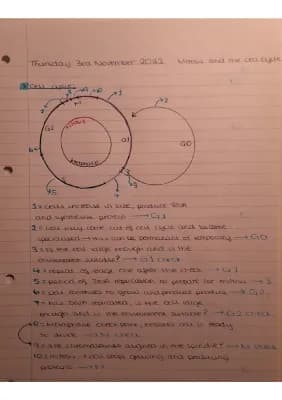 Thursday 3rd November 2022 Mitosis and the cell cycle
Cell cycle
G2
G1
G0
S
1 = cells increase in size, produce RNA
and synthesise protein → G1
2 = cell may come out of cell cycle and become
specialised → this can be permanent or temporary → G0
3 = is the cell large enough and is the
environment suitable? → G1 check
4 = repair of
after the check → G1
5 = period of DNA replication to prepare for mitosis → S
6 = cell continues to grow and produce proteins → G2
7 = has DNA replicated, is the cell large
enough and is the environment suitable? → G2 check
8 = metaphase check point, ensures cell is ready
to divide → M check
9 = are chromosomes aligned on the spindle? → M check
10 = mitosis - cell stops growing and producing
proteins → M